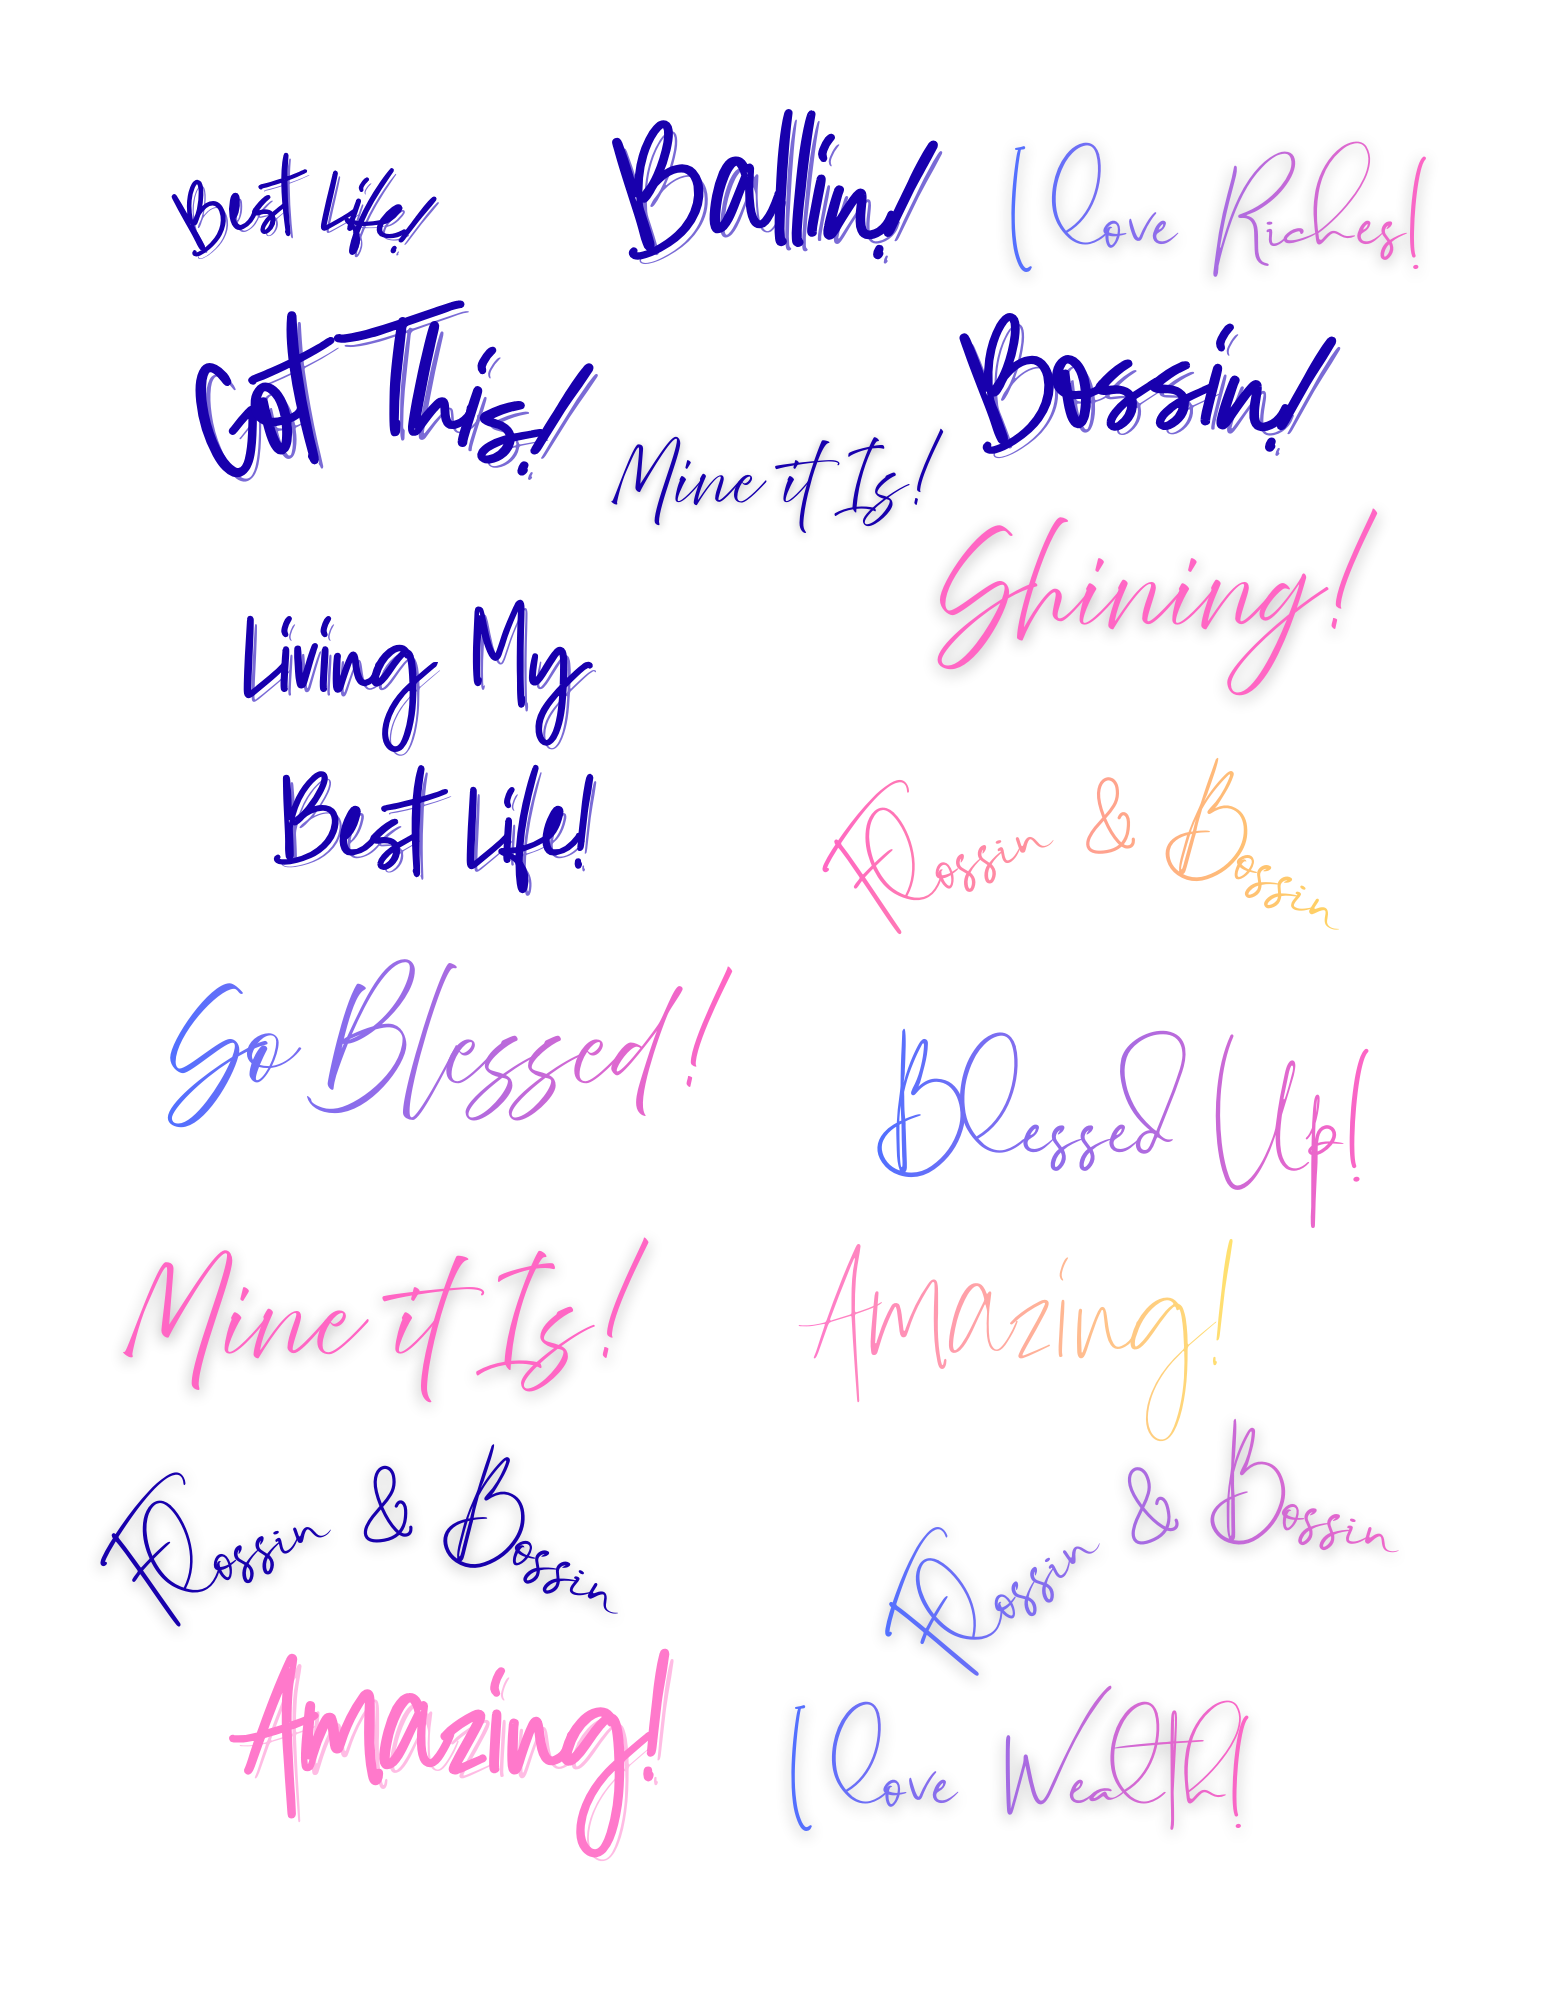 Best Life!
Ballin!
I love Riches!
Got This!
Bossin!
Mine it Is!
Shining!
Living My
Best Life!
Flossin & Bossin
So Blessed!
Blessed Up!
Mine it Is!
Amazing!
Flossin & Bossin
Flossin & Bossin
Amazing!
I love Wealth!